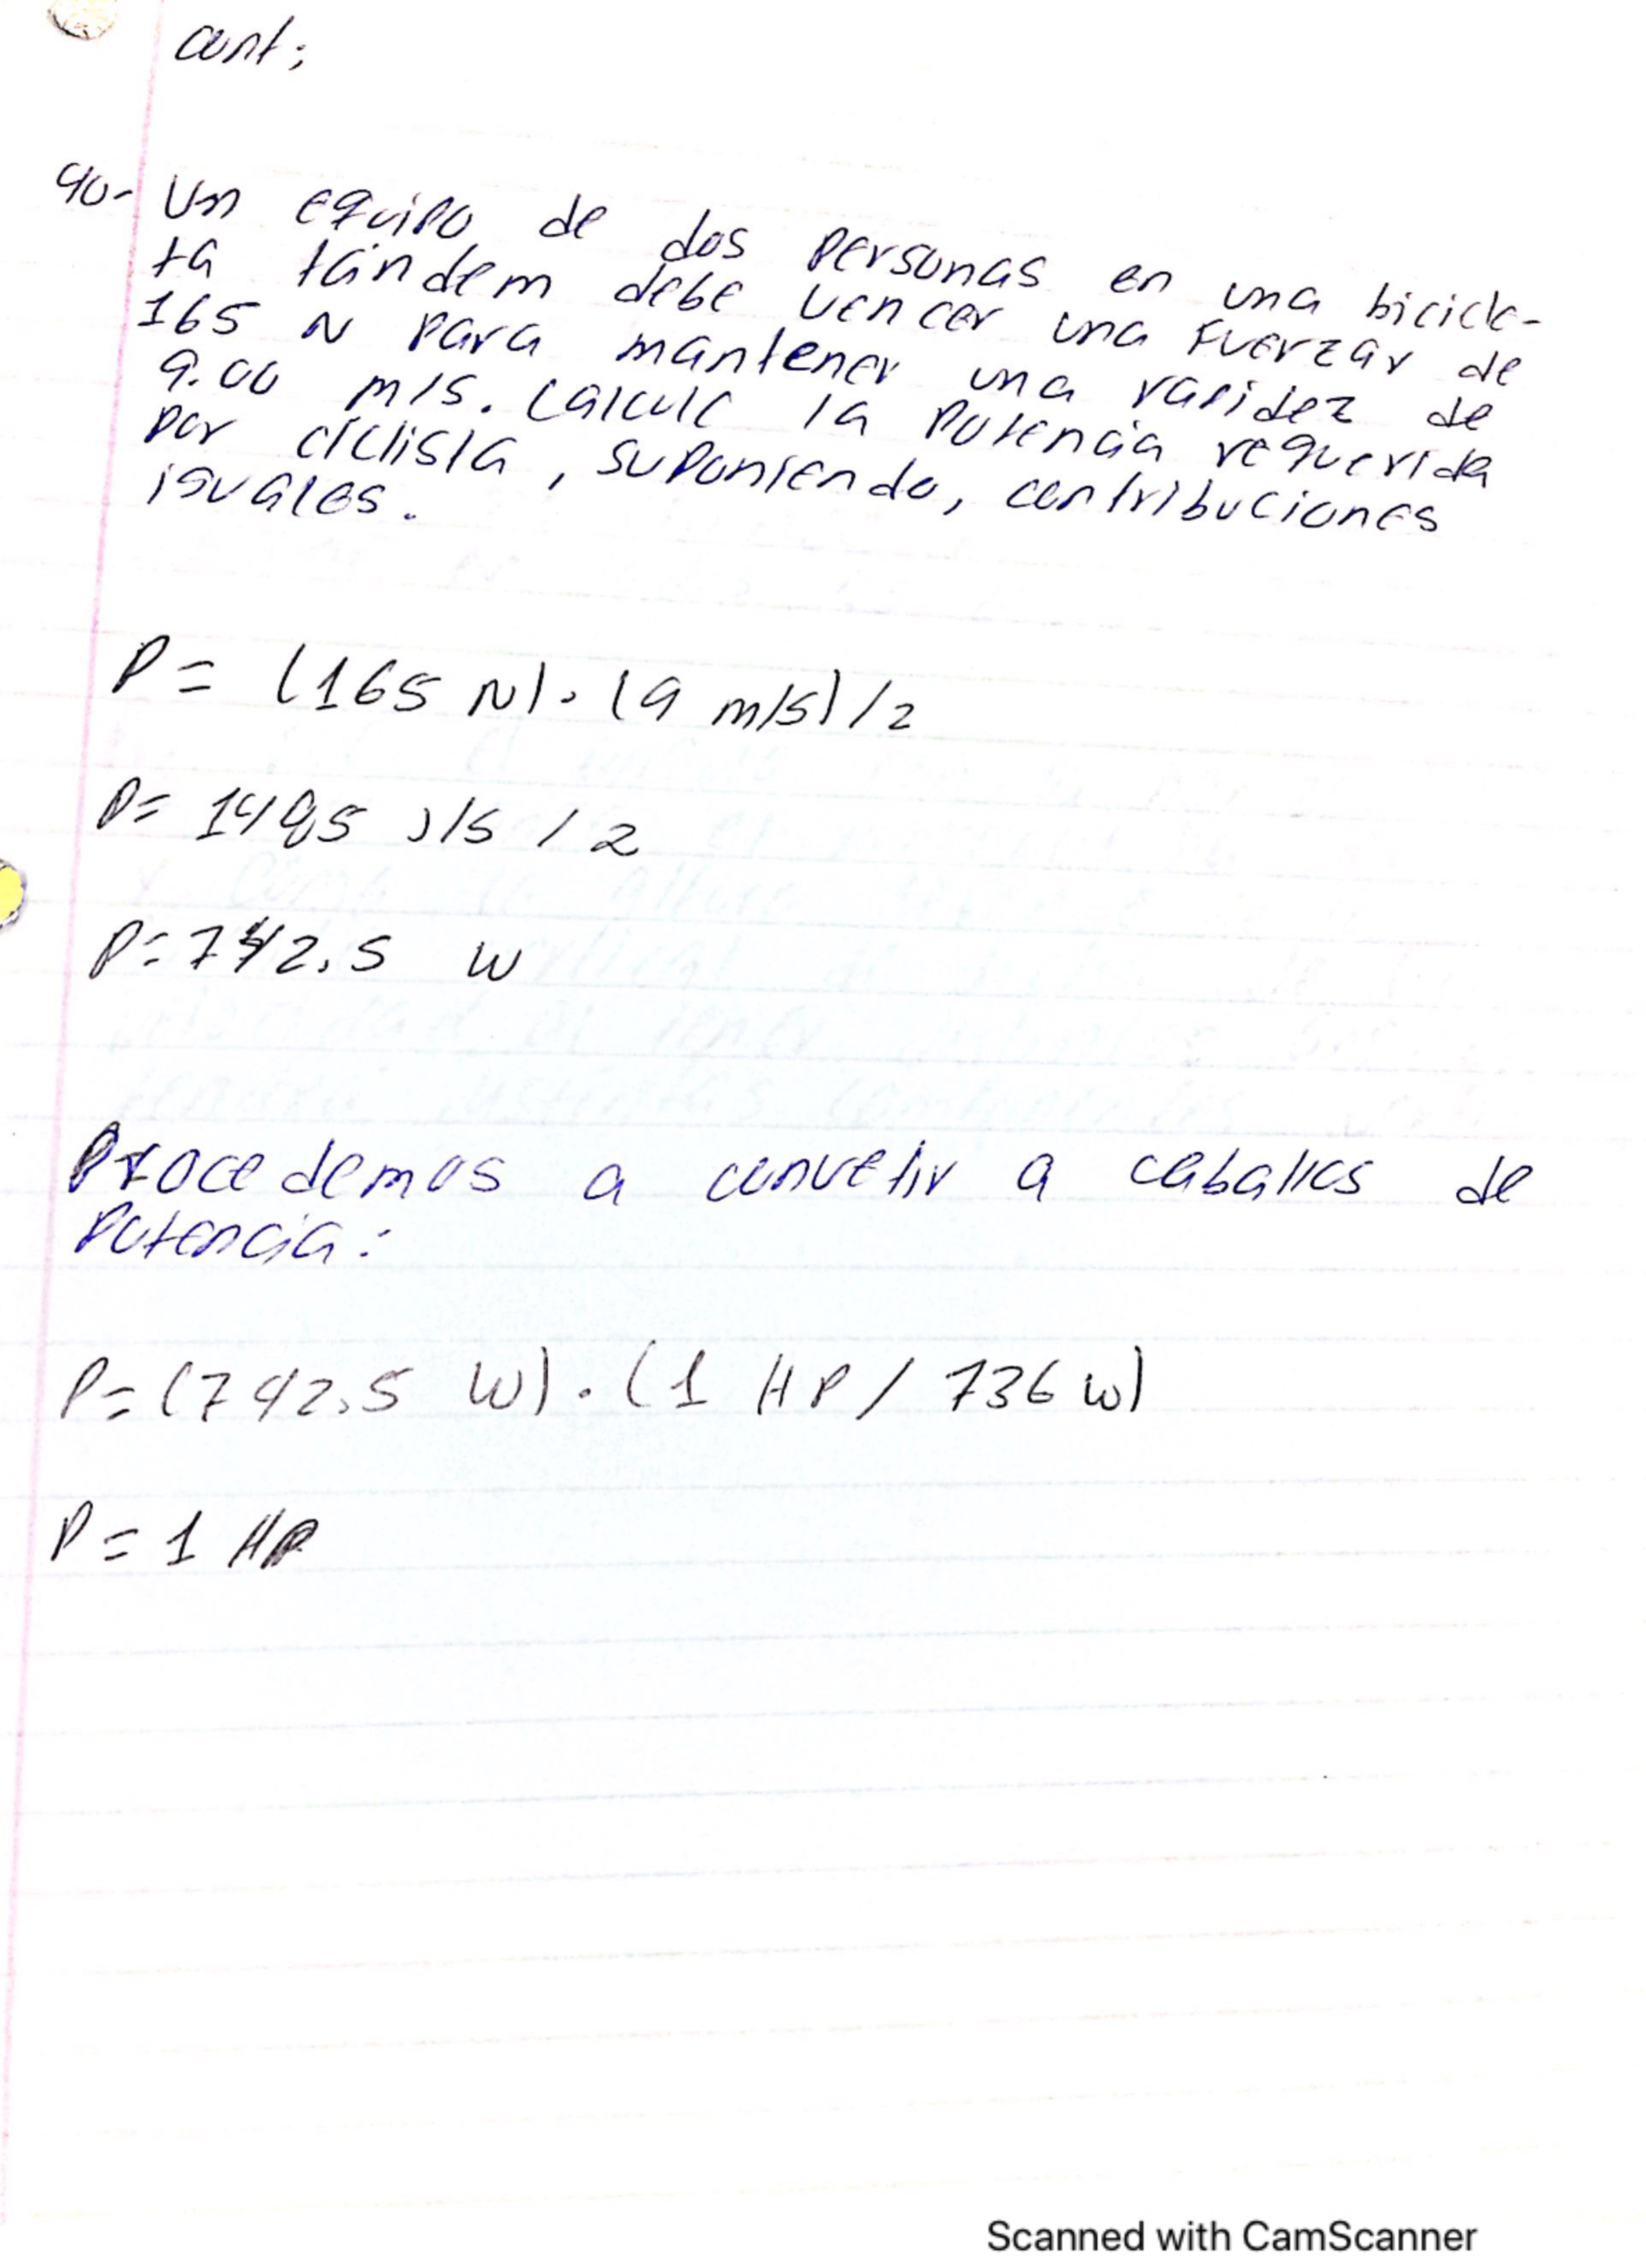 cont;
40- Un equipo de dos personas en una bicicle-
ta tándem debe vencer una fuerzar de
165 N para mantener una rapidez de
9.00 m/s. calcule la potencia requerida
por ciclista, suponiendo, contribuciones
iguales.
P = (165 N) . (9 m/s) / 2
P = 1485 J/s / 2
P = 742.5 W
Procedemos a convetir a caballos de
Potencia:
P = (742.5 W) . (1 HP / 736 W)
P = 1 HP
Scanned with CamScanner